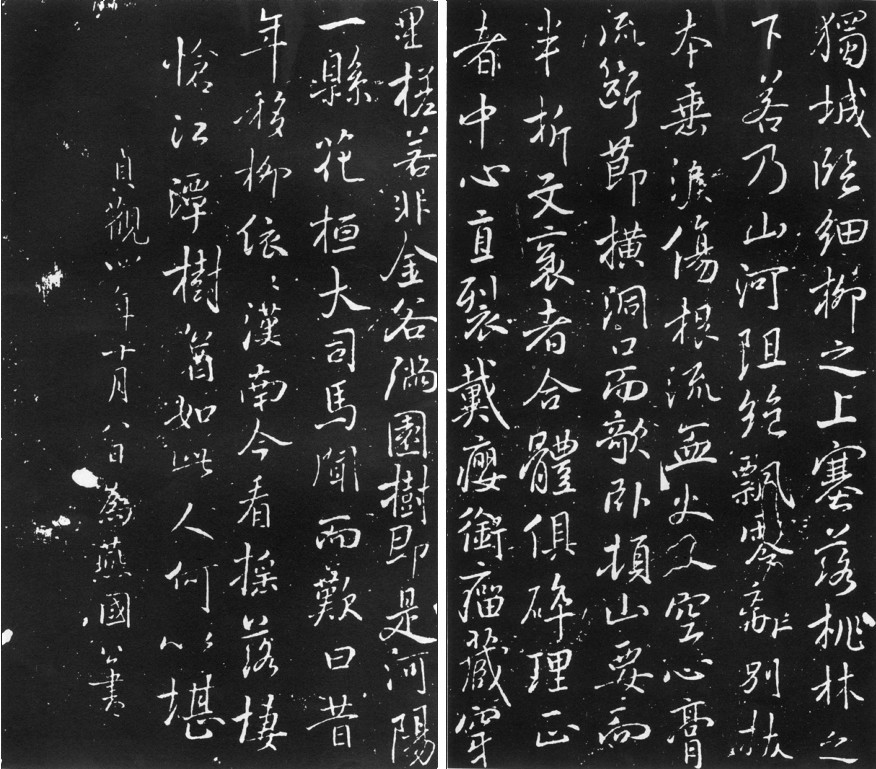 獨城臨細柳之上塞落桃林之
下若乃山河阻絕飄零離別拔
本垂淚傷根流血火入空心膏
流斷節橫洞口而欹臥頓山要而
半折文衺者合體俱碎理正
者中心直裂戴癭銜瘤藏穿
星槎若非金谷滿園樹即是河陽
一縣花桓大司馬聞而歎曰昔
年移柳依〻漢南今看搖落悽
愴江潭樹猶如此人何以堪
貞觀四年十月八日為燕國公書